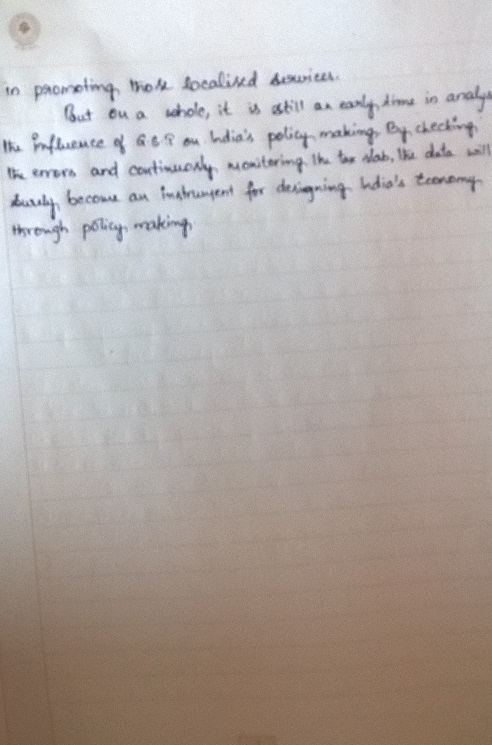 in promoting those localised services.
But on a whole, it is still an early time in analys
the influence of GST on India's policy making. By checking
the errors and continuously monitoring the tax slab, the data will
surely become an instrument for designing India's Economy
through policy making.